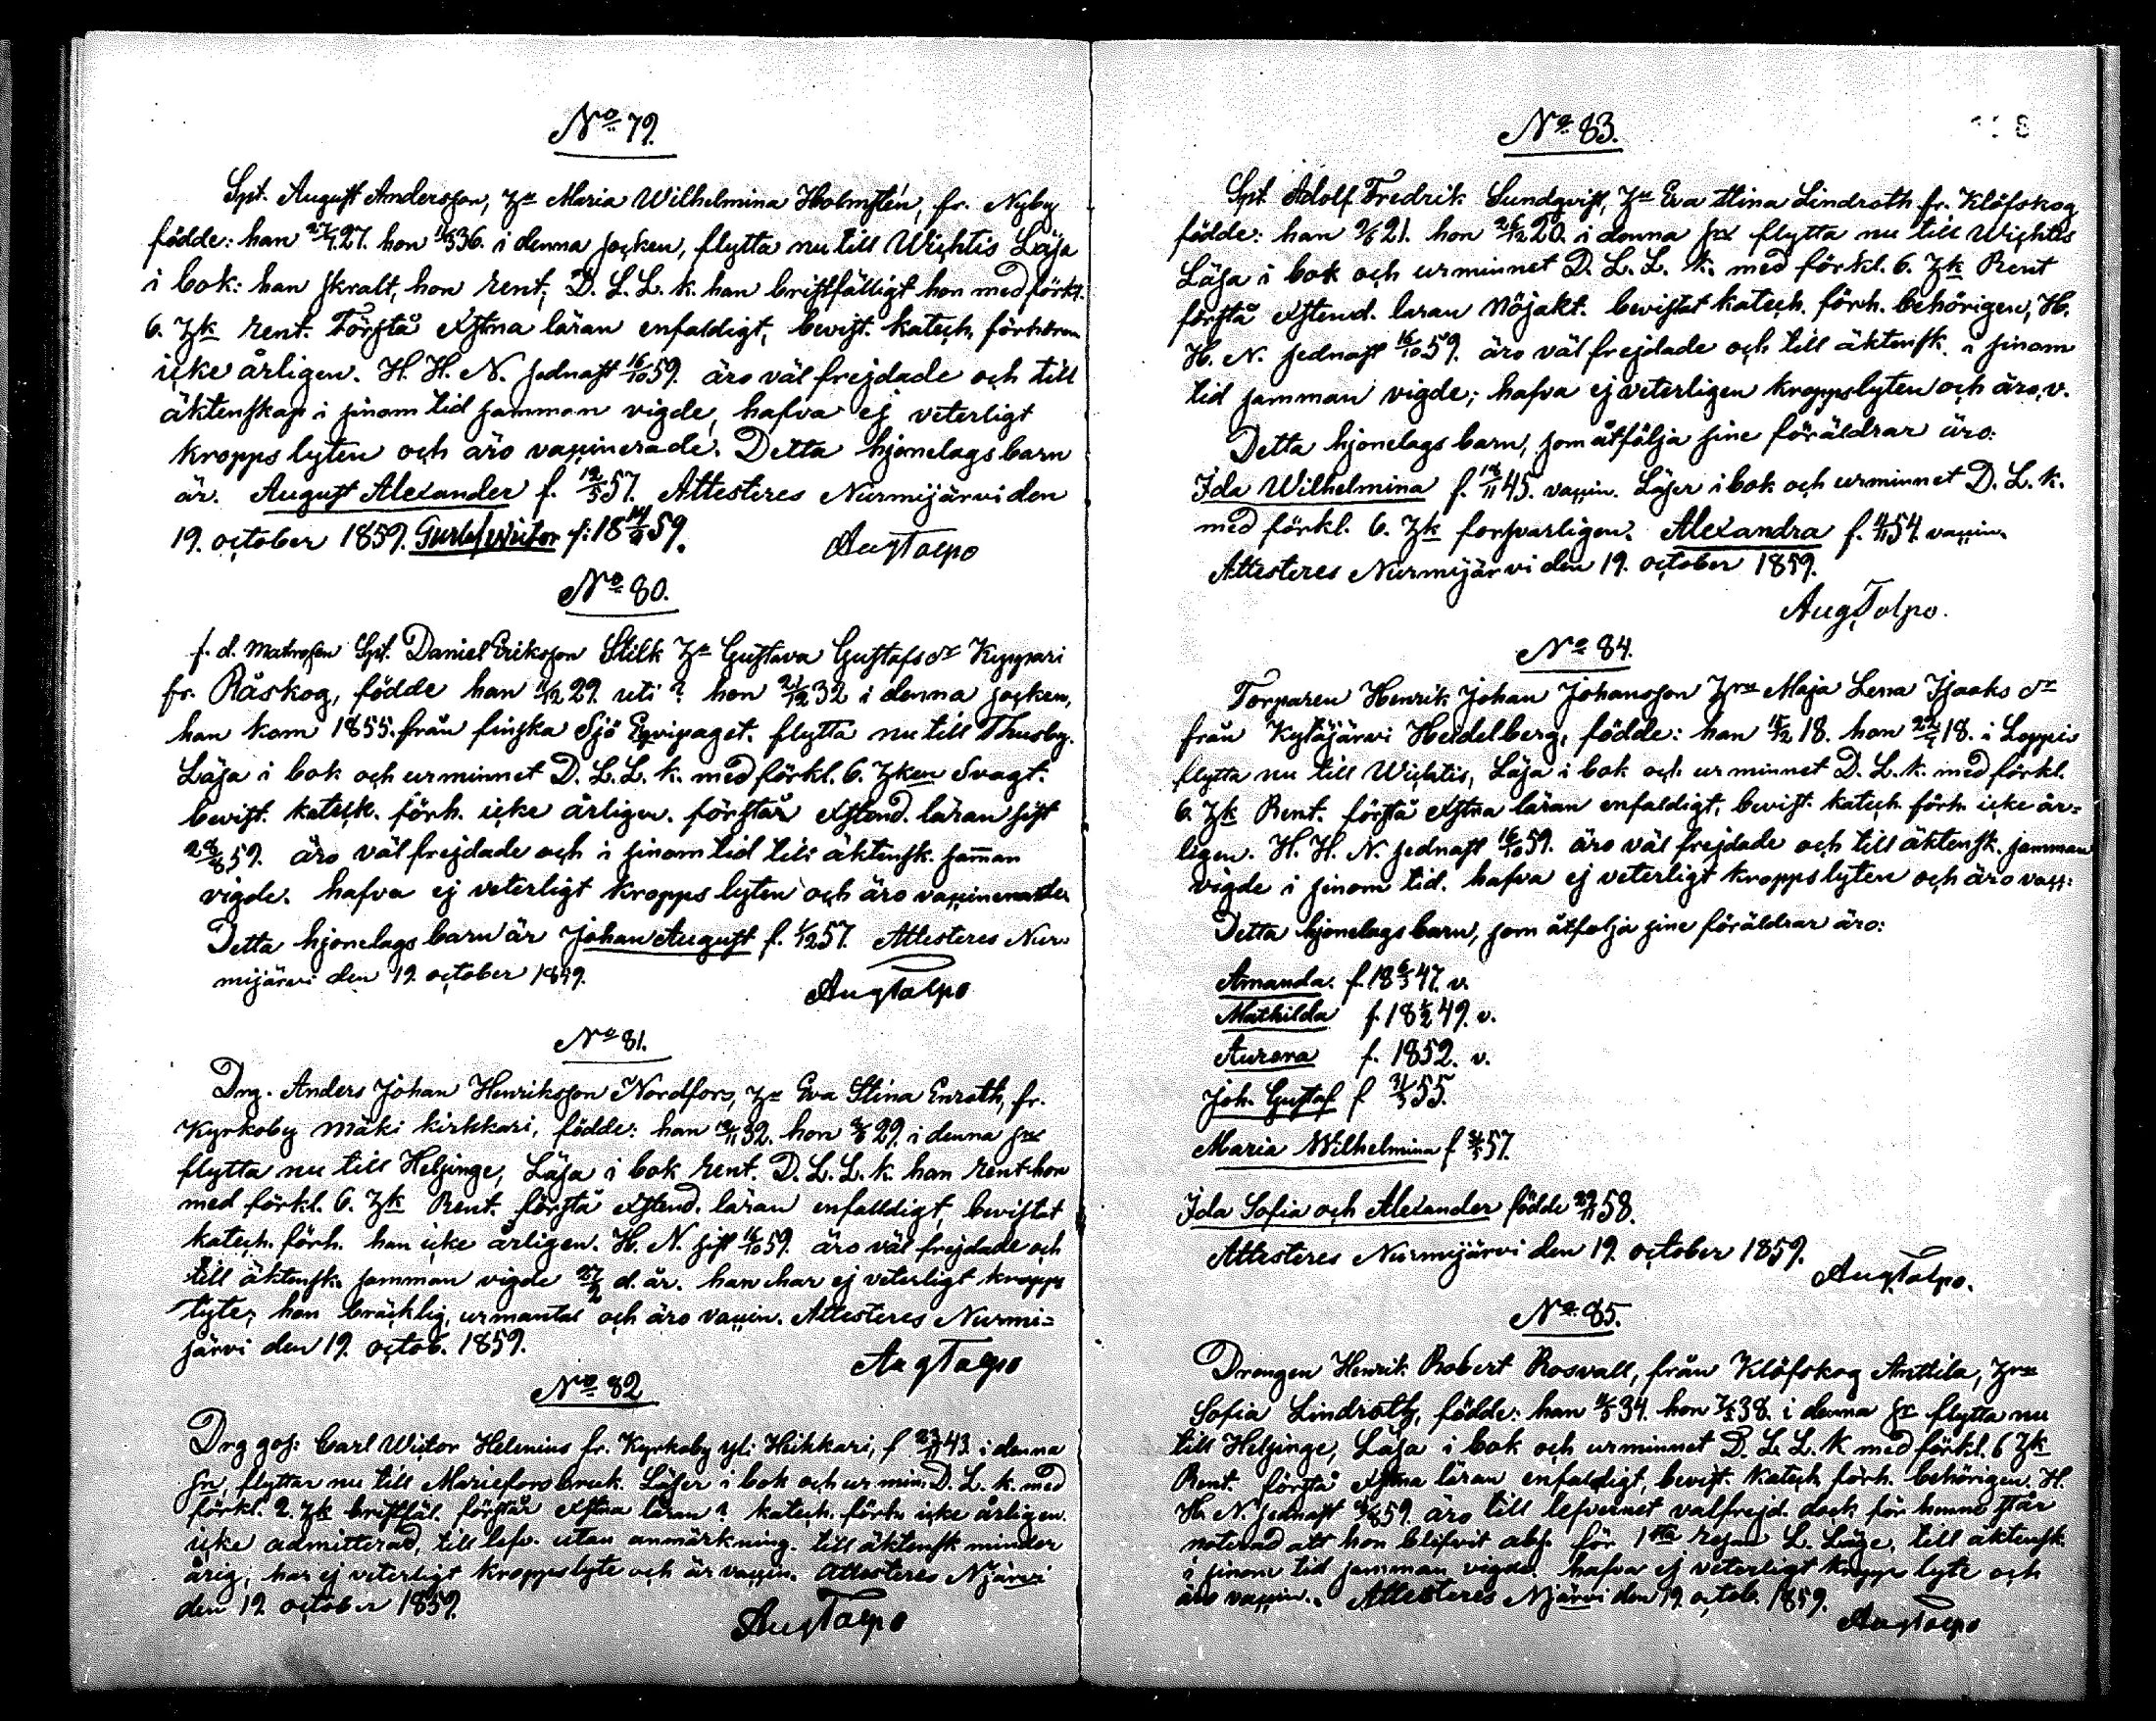 No 79.
Spt. August Andersson, H:u Maria Wilhelmina Holmstén, fr. Nyby
födde: han 27. hon 36. i denna socken, flytta nu till Wichtis Läsa
i bok: han skralt, hon rent; D. L. L. k. han bristfälligt hon med förkl.
6. Hk rent. Förstå Xstna läran enfaldigt, bevist. katech. förhören
icke årligen. H. H. N. sednast 16/10 59. äro väl frejdade och till
äktenskap i sinom tid samman vigde, hafva ej veterligt
kroppslyten och äro vaccinerade. Detta hjonelags barn
är. August Alexander f. 12/5 57. Attesteres Nurmijärvi den
19. october 1859. f: 18 59.
AugTalpo
No 80.
f. d. Matrosen Spt. Daniel Eriksson Stilk H:u Gustava Gustafs dr Kyppari
fr. Råskog, födde han 29. uti ? hon 32 i denna socken,
han kom 1855. från finska Sjö Eqvipaget. flytta nu till Thusby.
Läsa i bok och urminnet D. L. L. k. med förkl. 6. Hken Svagt.
bevist. katech. förh. icke årligen. förstår Xstend. läran sist
59. äro väl frejdade och i sinom tid till äktensk. samman
vigde. hafva ej veterligt kropps lyten och äro vaccinerade
Detta hjonelags barn är Johan August f. 1/12 57. Attesteres Nur-
mijärvi den 19. october 1859.
AugTalpo
No 81.
Drg. Anders Johan Henriksson Nordfors, H:u Eva Stina Enroth, fr.
Kyrkoby Mäki kirkkari, födde: han 32. hon 29. i denna sn
flytta nu till Helsinge, Läsa i bok rent. D. L. L. k. han rent hon
med förkl. 6. Hk Rent. förstå Xstend. läran enfalldigt, bevistat
katech. förh. han icke årligen. H. N. sist 16/10 59. äro väl frejdade och
till äktensk. samman vigde 27/2 d. år. han har ej veterligt kropps
lyte, hon bräcklig, urmantal och äro vaccin. Attesteres Nurmi=
järvi den 19. octob. 1859.
AugTalpo
No 82
Drg gos: Carl Wictor Helenius fr. Kyrkoby yli: Heikkari, f 43. i denna
sn, flyttar nu till Mariefors bruk. Läser i bok och ur min. D. L. k. med
förkl. 2. Hk bristfäl. förstår Xstna läran ? katech. förh. icke årligen.
icke admitterad, till lefv. utan anmärkning. till äktensk minder
årig, har ej veterligt kroppslyte och är vaccin. Attesteres Njärvi
den 19 october 1859.
AugTalpo
No 83.
Spt. Adolf Fredrik Sundqvist, H:u Eva Stina Lindroth fr. Klöfskog
födde: han 21. hon 26/12 20. i denna sn flytta nu till Wichtis
Läsa i bok och urminnet D. L. L. k. med förkl. 6. Hk Rent
förstå Xstend. läran Nöjakt. bevistat katech. förh. behörigen, H.
H. N. sednast 16/10 59. äro väl frejdade och till äktensk. i sinom
tid samman vigde; hafva ej veterligen kroppslyten och äro, v.
Detta hjonelags barn, som åtfölja sine föräldrar äro:
Ida Wilhelmina f. 45. vaccin. Läser i bok och urminnet D. L. k.
med förkl. 6. Hk forsvarligen. Alexandra f. 54. vaccin.
Attesteres Nurmijärvi den 19. october 1859.
AugTalpo.
No 84.
Torparen Henrik Johan Johansson H:ru Maja Lena Isaaks dr
från Kytäjärvi Heidelberg, födde: han 18. hon 18. i Loppis
flytta nu till Wichtis, Läsa i bok och ur minnet D. L. k. med förkl.
6. Hk Rent. förstå Xstna läran enfaldigt, bevist. katech. förh. icke år=
ligen. H. H. N. sednast 16/10 59. äro väl frejdade och till äktensk. samman
vigde i sinom tid. hafva ej veterligt kroppslyten och äro vacc:
Detta hjonelags barn, som åtfölja sine föräldrar äro:
Amanda. f. 18 47. v.
Mathilda f. 18 49. v.
Aurora f. 1852. v.
Joh. Gustaf f 55.
Maria Wilhelmina f 57.
Ida Sofia och Alexander födde 58.
Attesteres Nurmijärvi den 19. october 1859.
AugTalpo.
No 85.
Drengen Henrik Robert Rosvall, från Klöfskog Anttila, H:ru
Sofia Lindroth, födde: han 34. hon 38. i denna sn flytta nu
till Helsinge, Läsa i bok och urminnet D. L. L. k med förkl. 6 Hk
Rent. förstå Xstna läran enfaldigt, bevist. Katech förh. behörigen. H.
H. N. sednast 59. äro till lefvernet valfrejd. dock för henne står
noterad att hon blifvit abs. för 1sta resan L. Läge, till äktensk.
i sinom tid samman vigde. hafva ej veterligt kropps lyte och
äro vaccin. Attesteres Njärvi den 19 octob. 1859.
AugTalpo